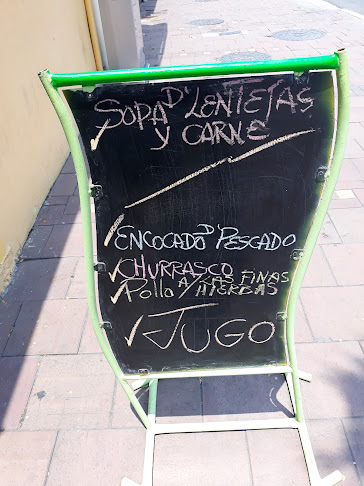 SOPA D' LENTEJAS
Y CARNE
ENCOCADO D' PESCADO
CHURRASCO
POLLO A/LAS FINAS
HIERBAS
JUGO